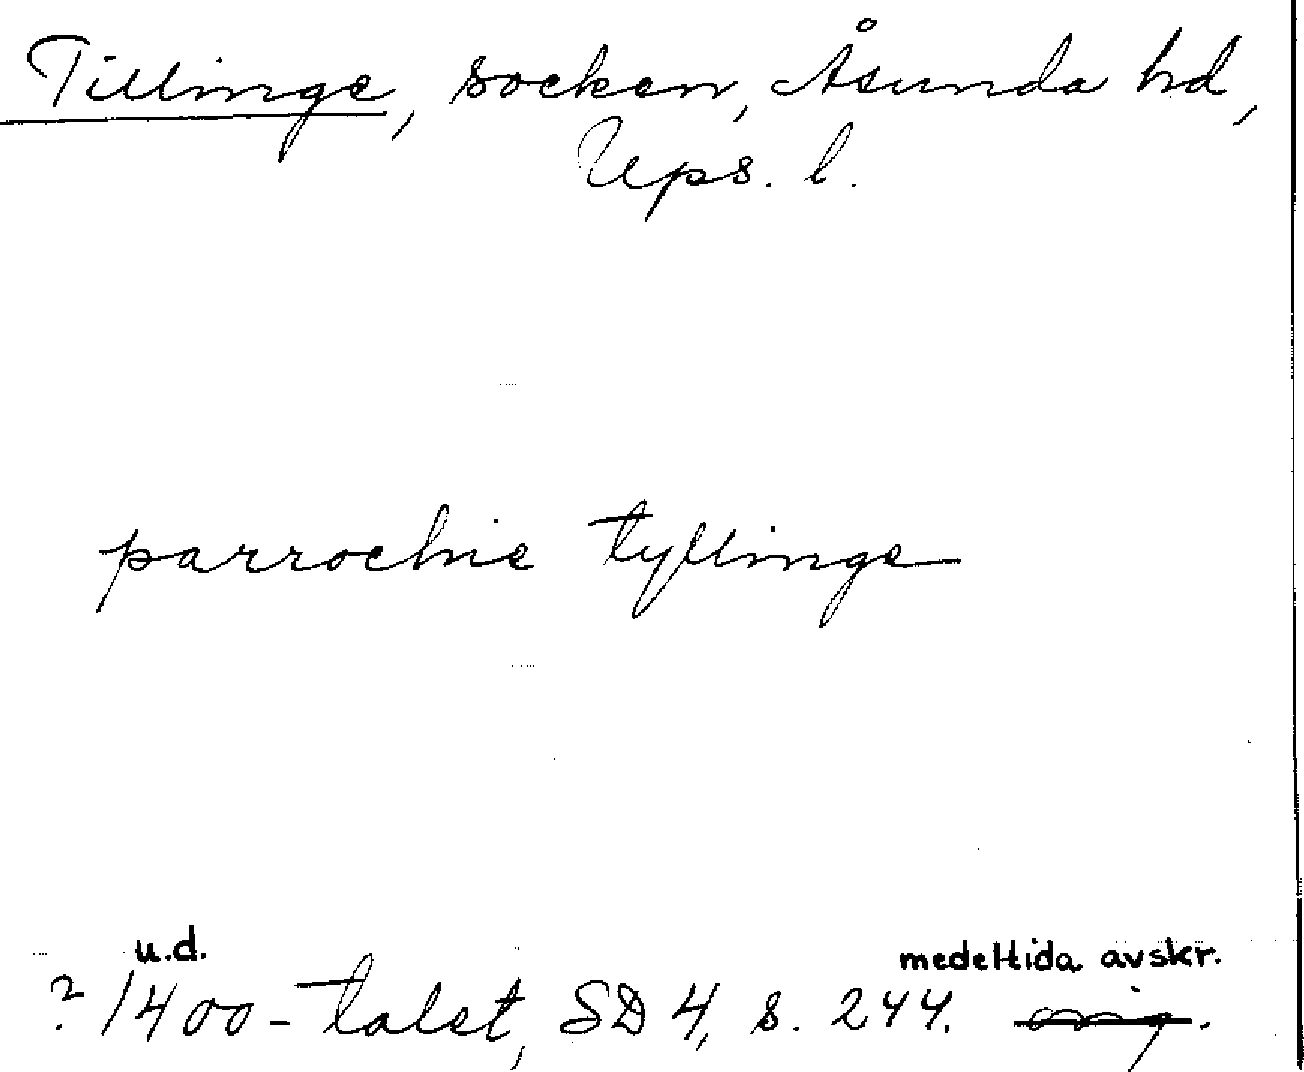 Tillinge, socken, Åsunda hd,
Ups. l.
parrochie tyllinge
u.d. medeltida avskr.
? 1400-talet, SD 4, s. 244. orig.